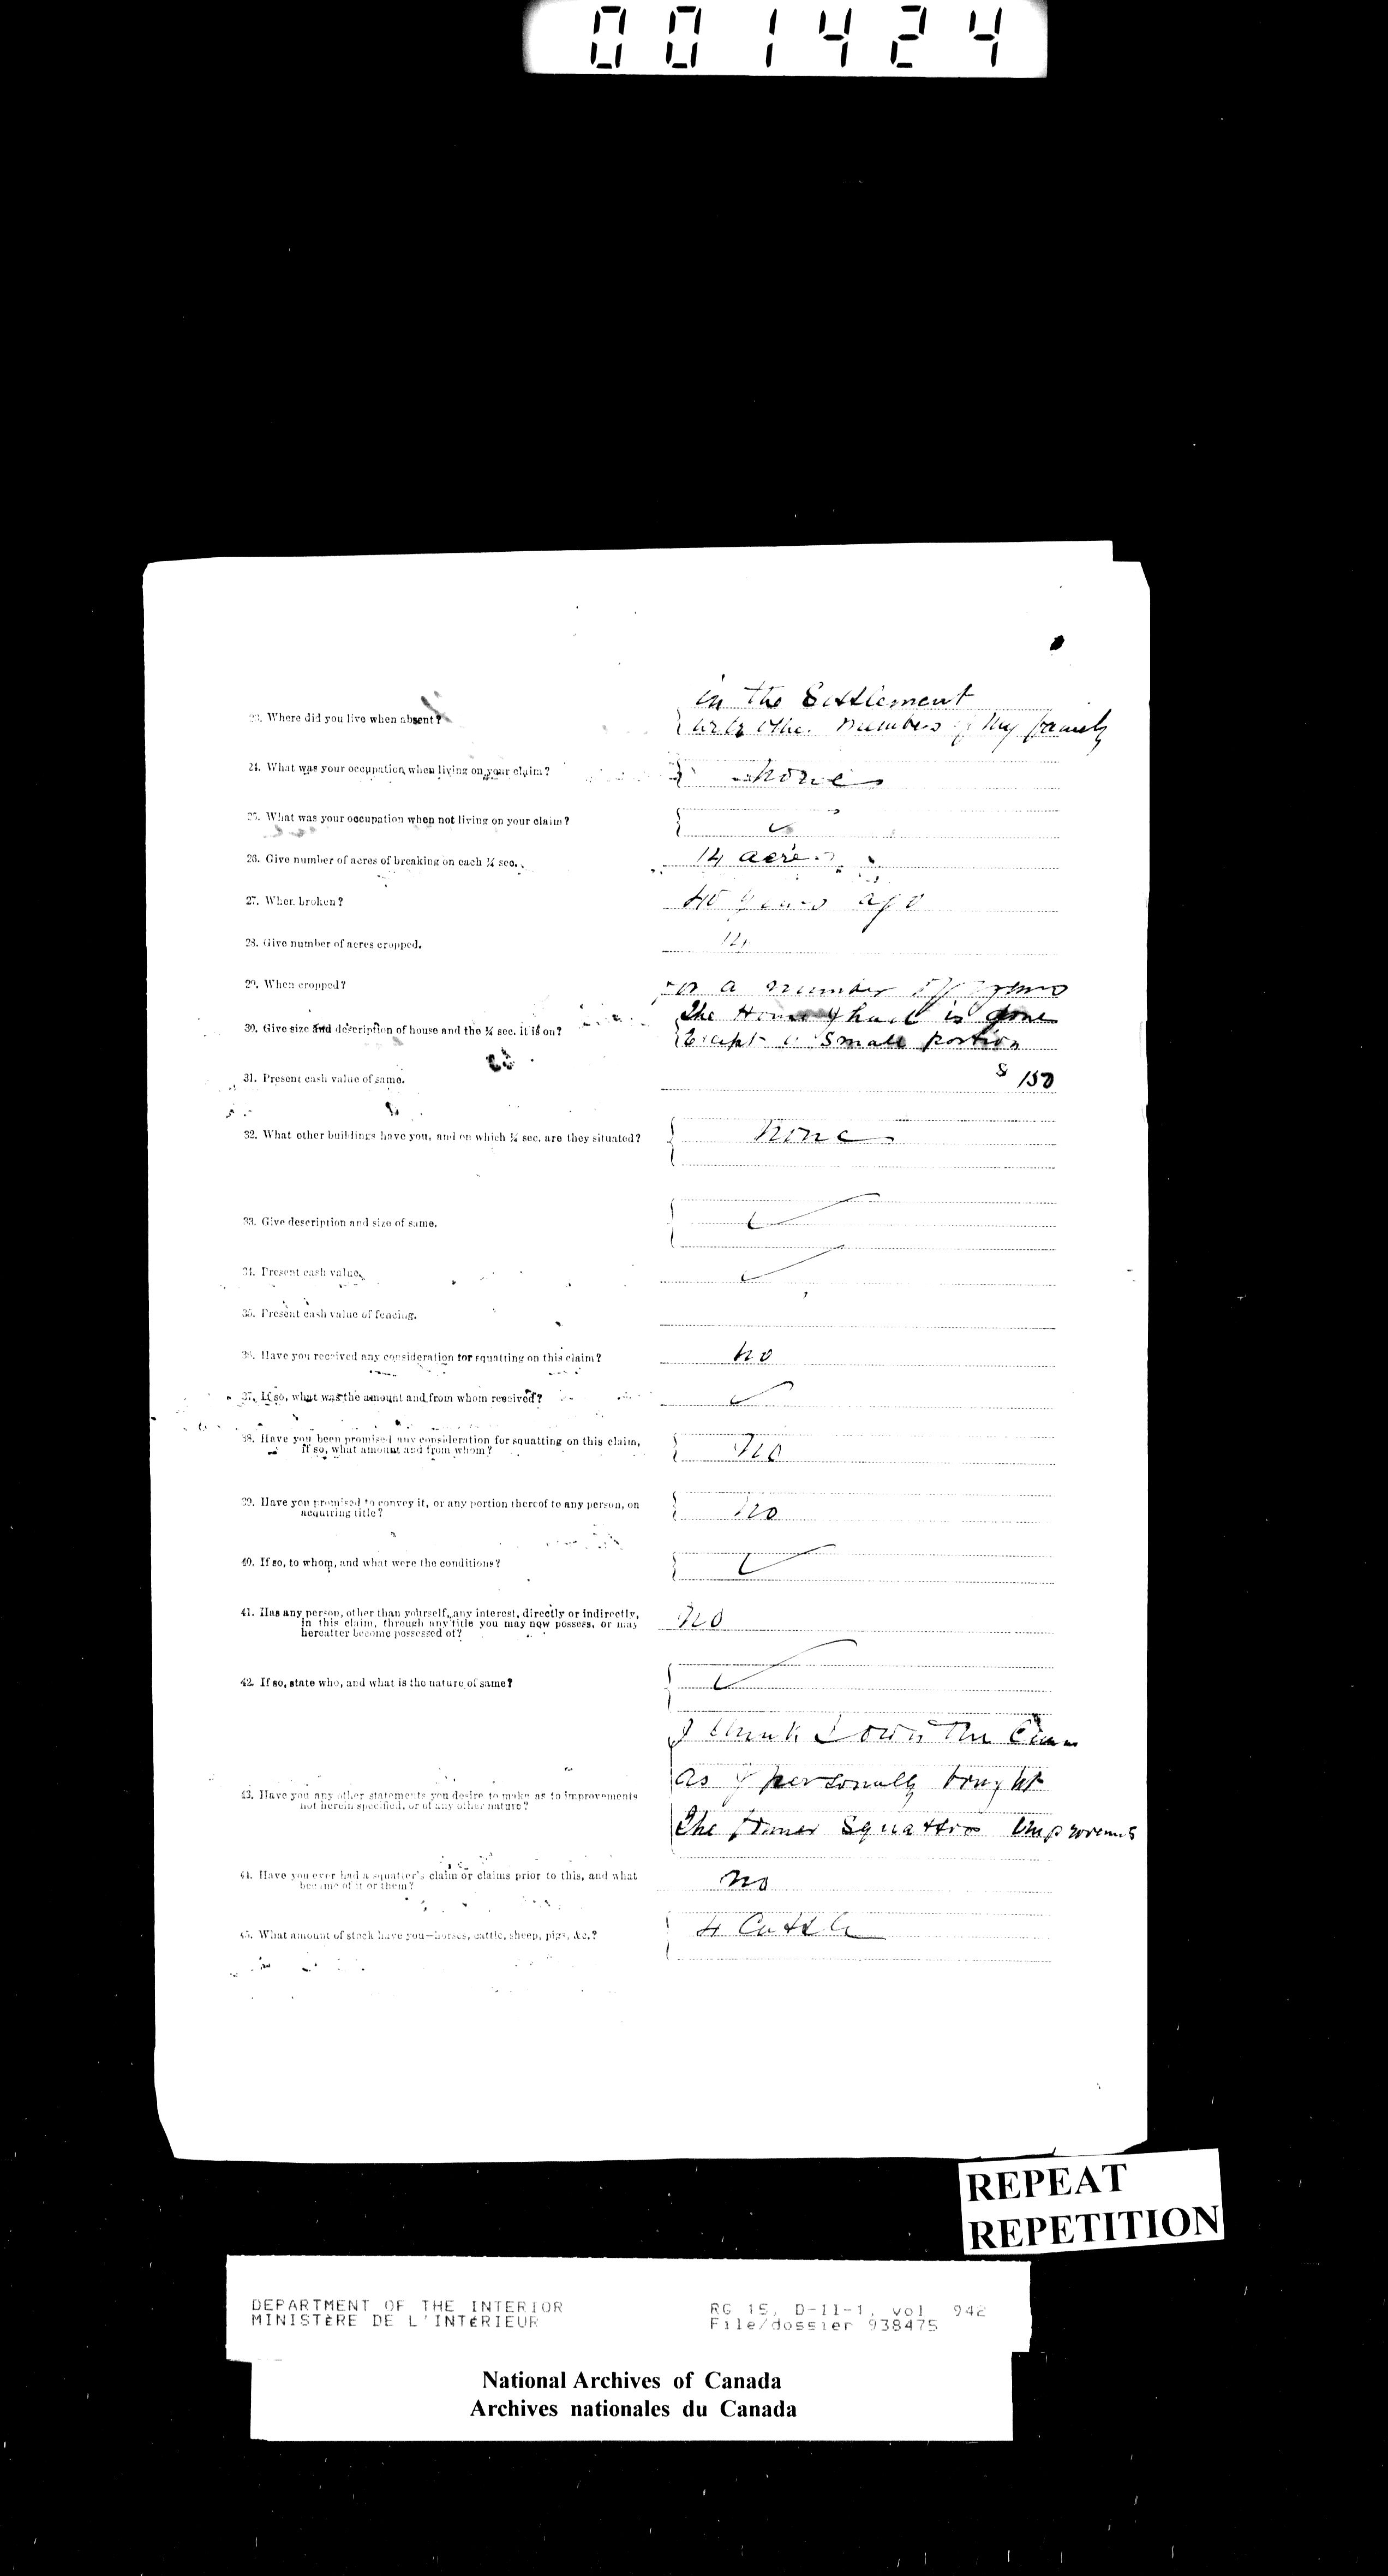 001424
in the Settlement
23. Where did you live when absent?
with other members of my family
24. What was your occupation when living on your claim?
none
25. What was your occupation when not living on your claim?
26. Give number of acres of breaking on each ¼ sec.
14 acres
27. When broken?
40 years ago
28. Give number of acres cropped.
14
29. When cropped?
for a number of years
The House I had is gone
30. Give size and description of house and the ¼ sec. it is on?
Except a small portion
31. Present cash value of same.
$ 150
32. What other buildings have you, and on which ¼ sec. are they situated?
none
33. Give description and size of same.
34. Present cash value.
35. Present cash value of fencing.
36. Have you received any consideration for squatting on this claim?
no
37. If so, what was the amount and from whom received?
38. Have you been promised any consideration for squatting on this claim,
If so, what amount and from whom?
No
39. Have you promised to convey it, or any portion thereof to any person, on
acquiring title?
no
40. If so, to whom, and what were the conditions?
41. Has any person, other than yourself, any interest, directly or indirectly,
in this claim, through any title you may now possess, or may
hereafter become possessed of?
no
42. If so, state who, and what is the nature of same?
I think I own the
as I personally bought
43. Have you any other statements you desire to make as to improvements
not herein specified, or of any other nature?
The former Squatters
44. Have you ever had a squatter's claim or claims prior to this, and what
became of it or them?
no
45. What amount of stock have you—horses, cattle, sheep, pigs, &c.?
4 Cattle
REPEAT
REPETITION
DEPARTMENT OF THE INTERIOR
MINISTÈRE DE L'INTÉRIEUR
RG 15, D-II-1, vol 942
File/dossier 938475
National Archives of Canada
Archives nationales du Canada